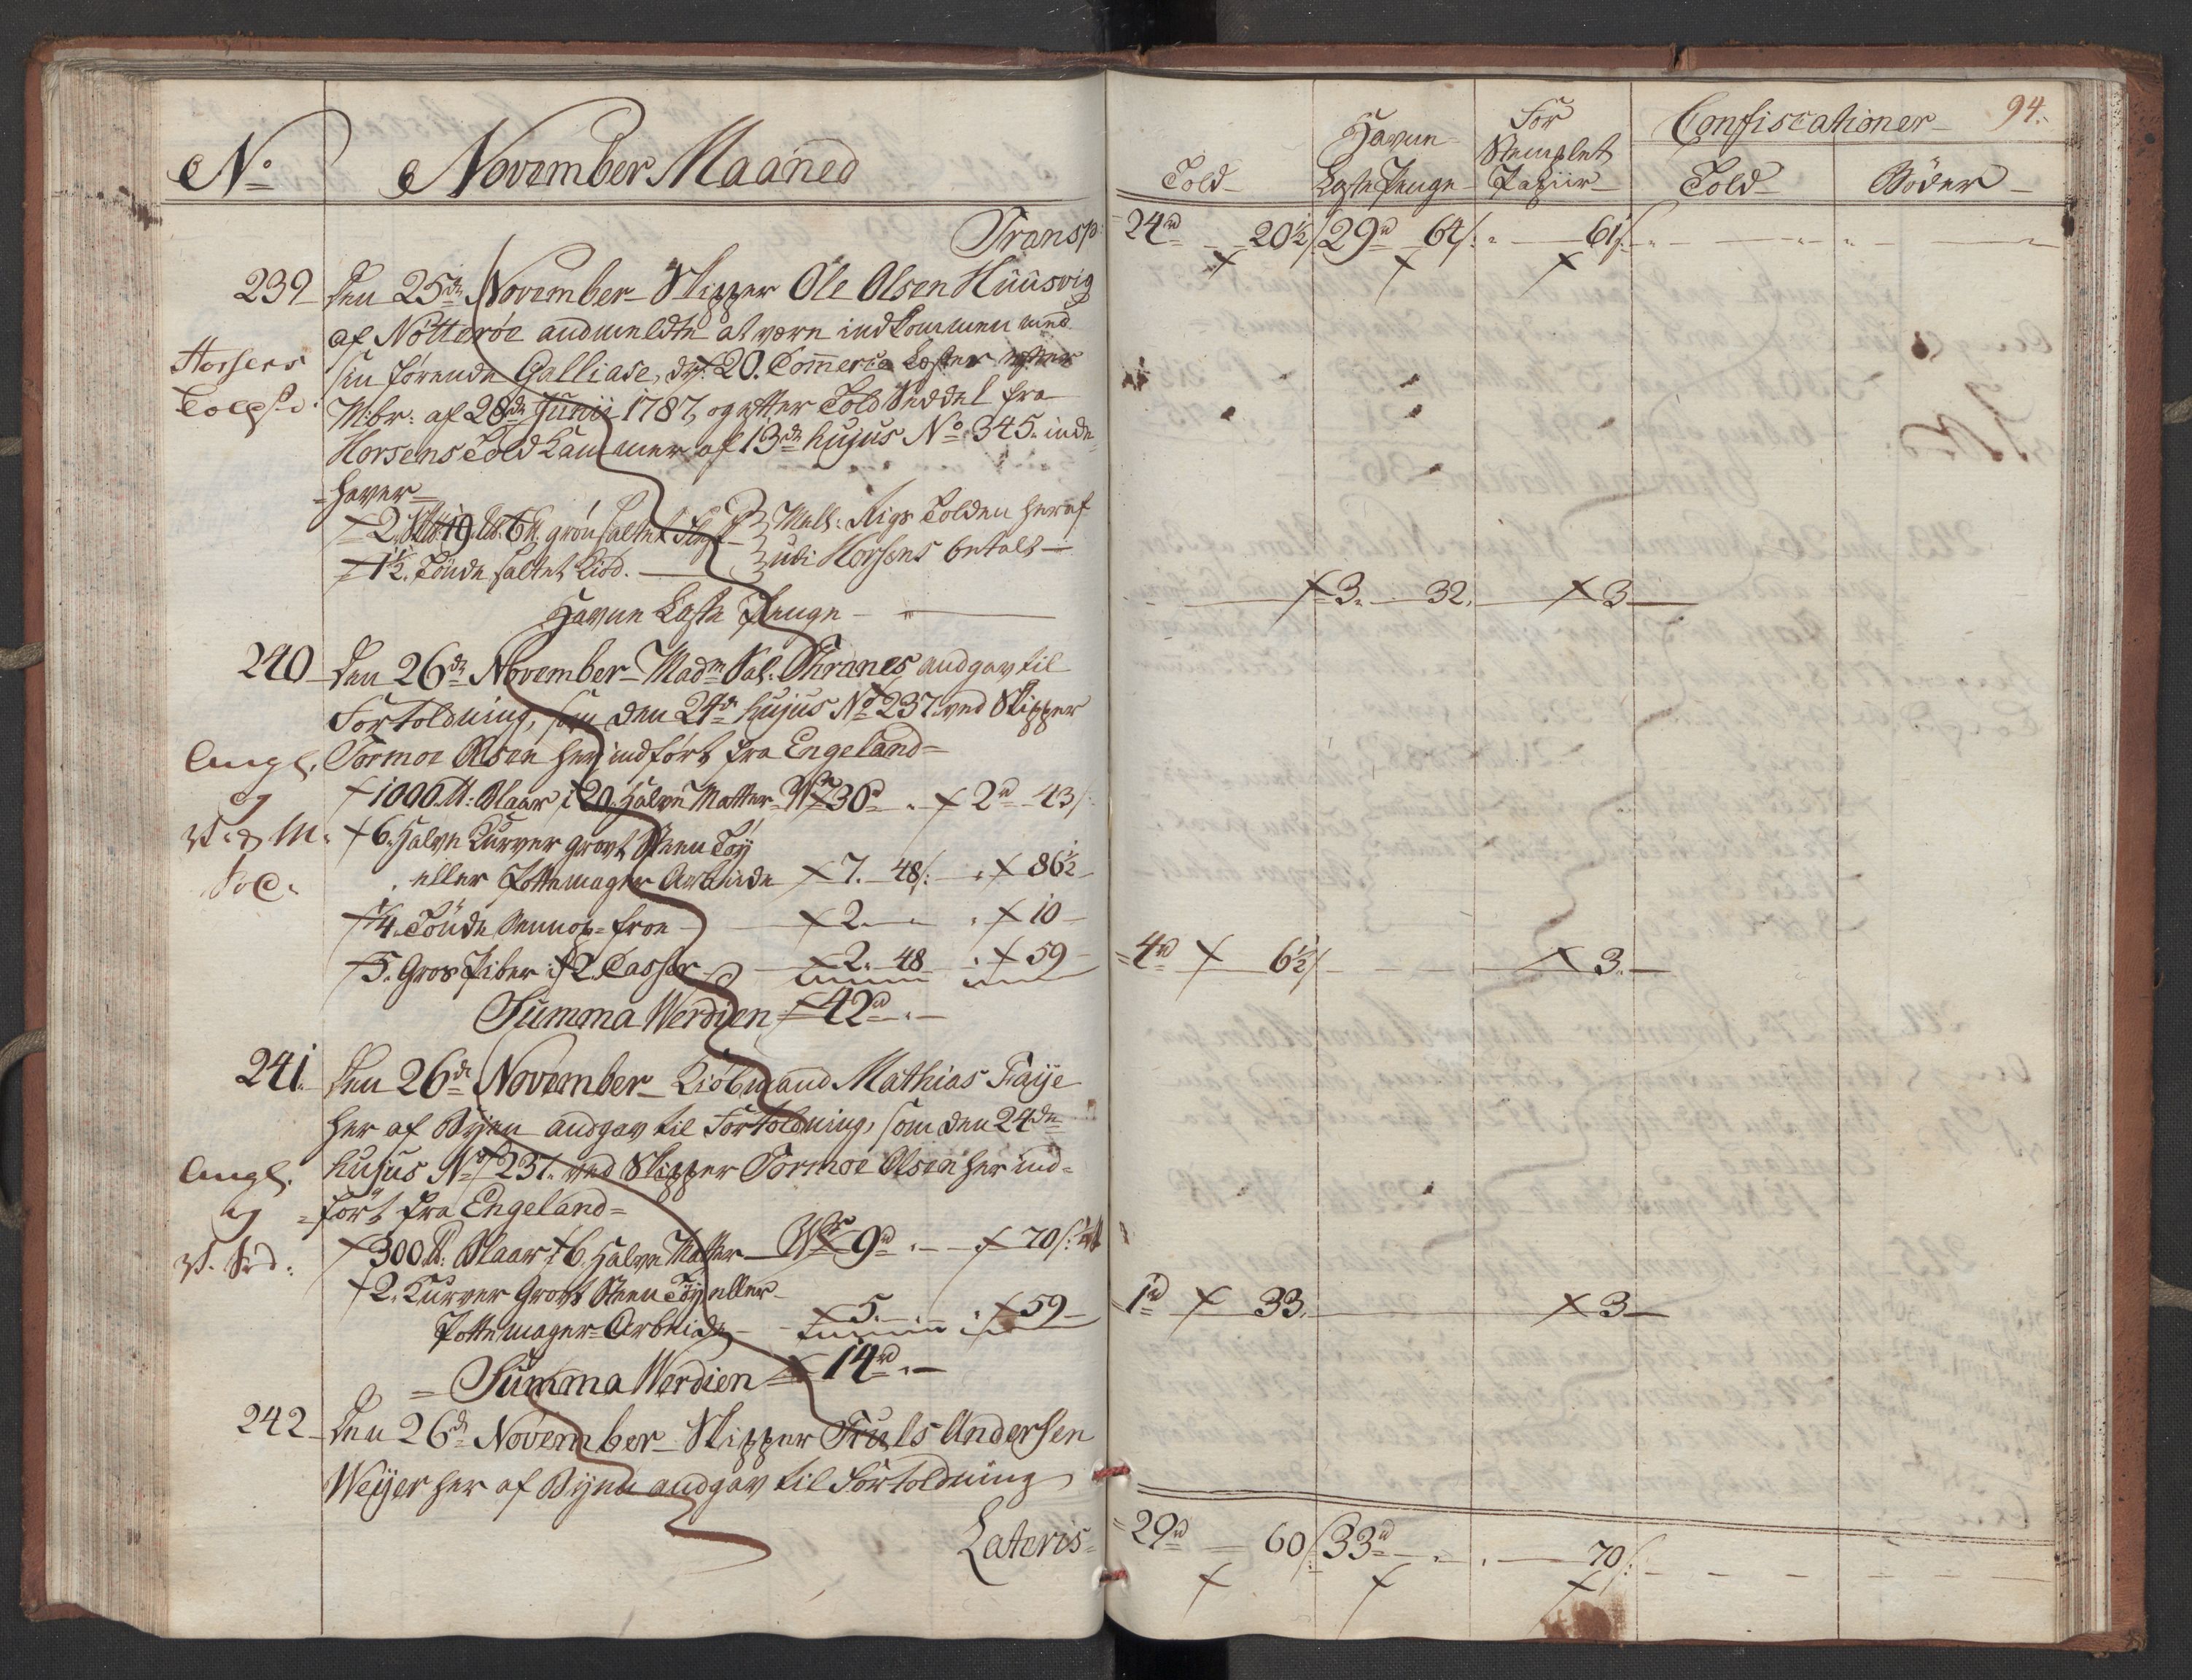 No
November Maaned
Transp:
239 Den 25de November Skipper Ole Olsen Huusvig
af Nötteröe andmeldte at være indkommen med
sin förende Galliase, dr: 20. Commerce Læster efter
Horsens
Mbr: af 28de Junii 1787, og efter Told Seddel fra
Horsens Told Kammer af 13de hujus No 345. inde
=haver
2. 19. 6 grön saltet Flesk
1½. Tönde saltet Kiöd.
Mell: Rigs Tolden heraf
udi Horsens betalt
Havne Læste Penge
240 Den 26de November Madme Sal: Thranes andgav til
Fortoldning, som den 24de hujus No 237. ved Skipper
Angl. Tormoe Olsen her indfört fra Engeland=
og
1000 ℔: Blaar i 20. halve Matter 30rd 2rd 43s:
6. halve Kurver grovt Steen Töy
eller Pottemager Arbeide 7. 48s: 86½
¼. Tönde Sennop=froe 2. 10
5. Gros Piber i 2. Casser 2. 48 59
Summa Werdien 42rd
241. Den 26de November Kiöbmand Mathias Faije
her af Byen andgav til Fortoldning, som den 24de
Angl. hujus No 237. ved Skipper Tormoe Olsen her ind=
og =fört fra Engeland=
300 ℔: Blaar i 6. halve Matter 9rd 70s:
2. Kurver Grovt Steen Töy eller
Pottemager=Arbeide 5. 59
= Summa Werdien = 14rd
242 Den 26de November Skipper Truls Andersen
Weyer her af Byen andgav til Fortoldning
Lateris=
94.
Told
Havne
Læste Penge
For
Stemplet
Papiir
Confiscationer
Told
Böder
24rd 20½s 29rd 64s: 61s:
3. 32. 3
4rd 6½s 3.
1rd 33. 3
29rd 60s 33rd 70s: